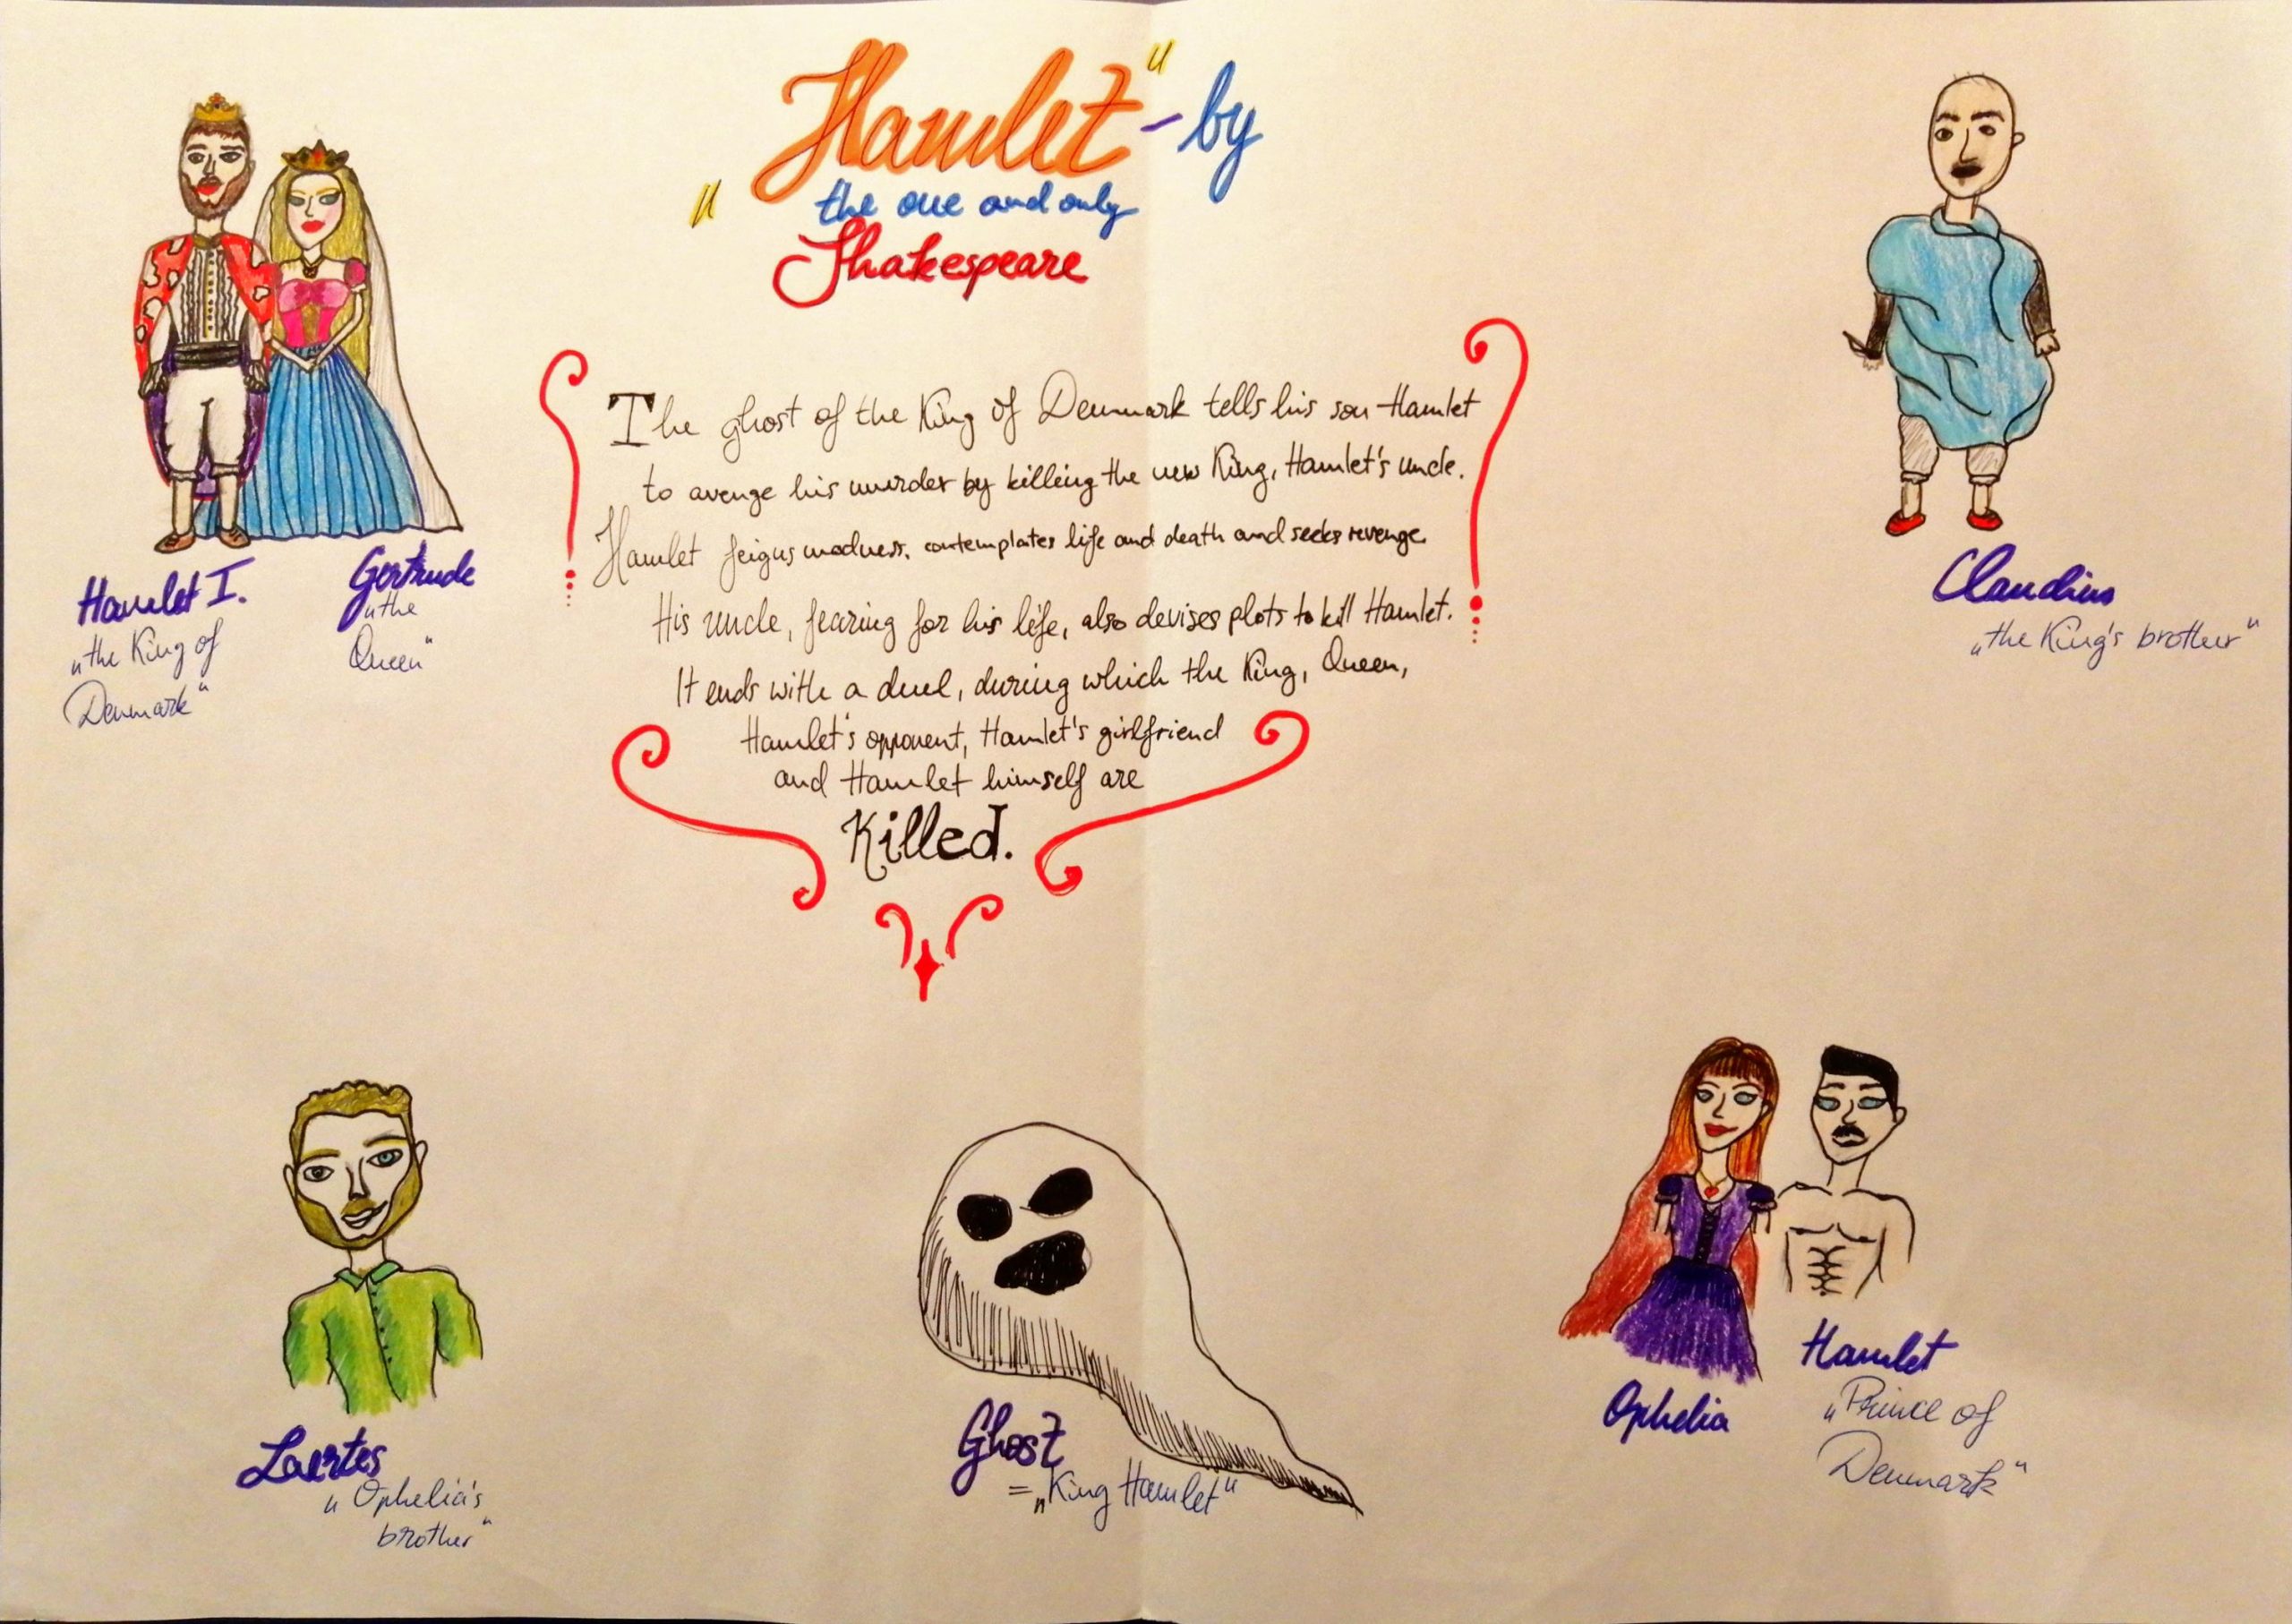 "Hamlet" - by
the one and only
Shakespeare
The ghost of the King of Denmark tells his son Hamlet
to avenge his murder by killing the new King, Hamlet's uncle.
Hamlet feigns madness, contemplates life and death and seeks revenge.
His uncle, fearing for his life, also devises plots to kill Hamlet.
It ends with a duel, during which the King, Queen,
Hamlet's opponent, Hamlet's girlfriend
and Hamlet himself are
Killed.
Hamlet I.
„the King of
Denmark"
Gertrude
„the
Queen"
Claudius
„the King's brother"
Laertes
„Ophelia's
brother"
Ghost
= „King Hamlet"
Ophelia
Hamlet
„Prince of
Denmark"